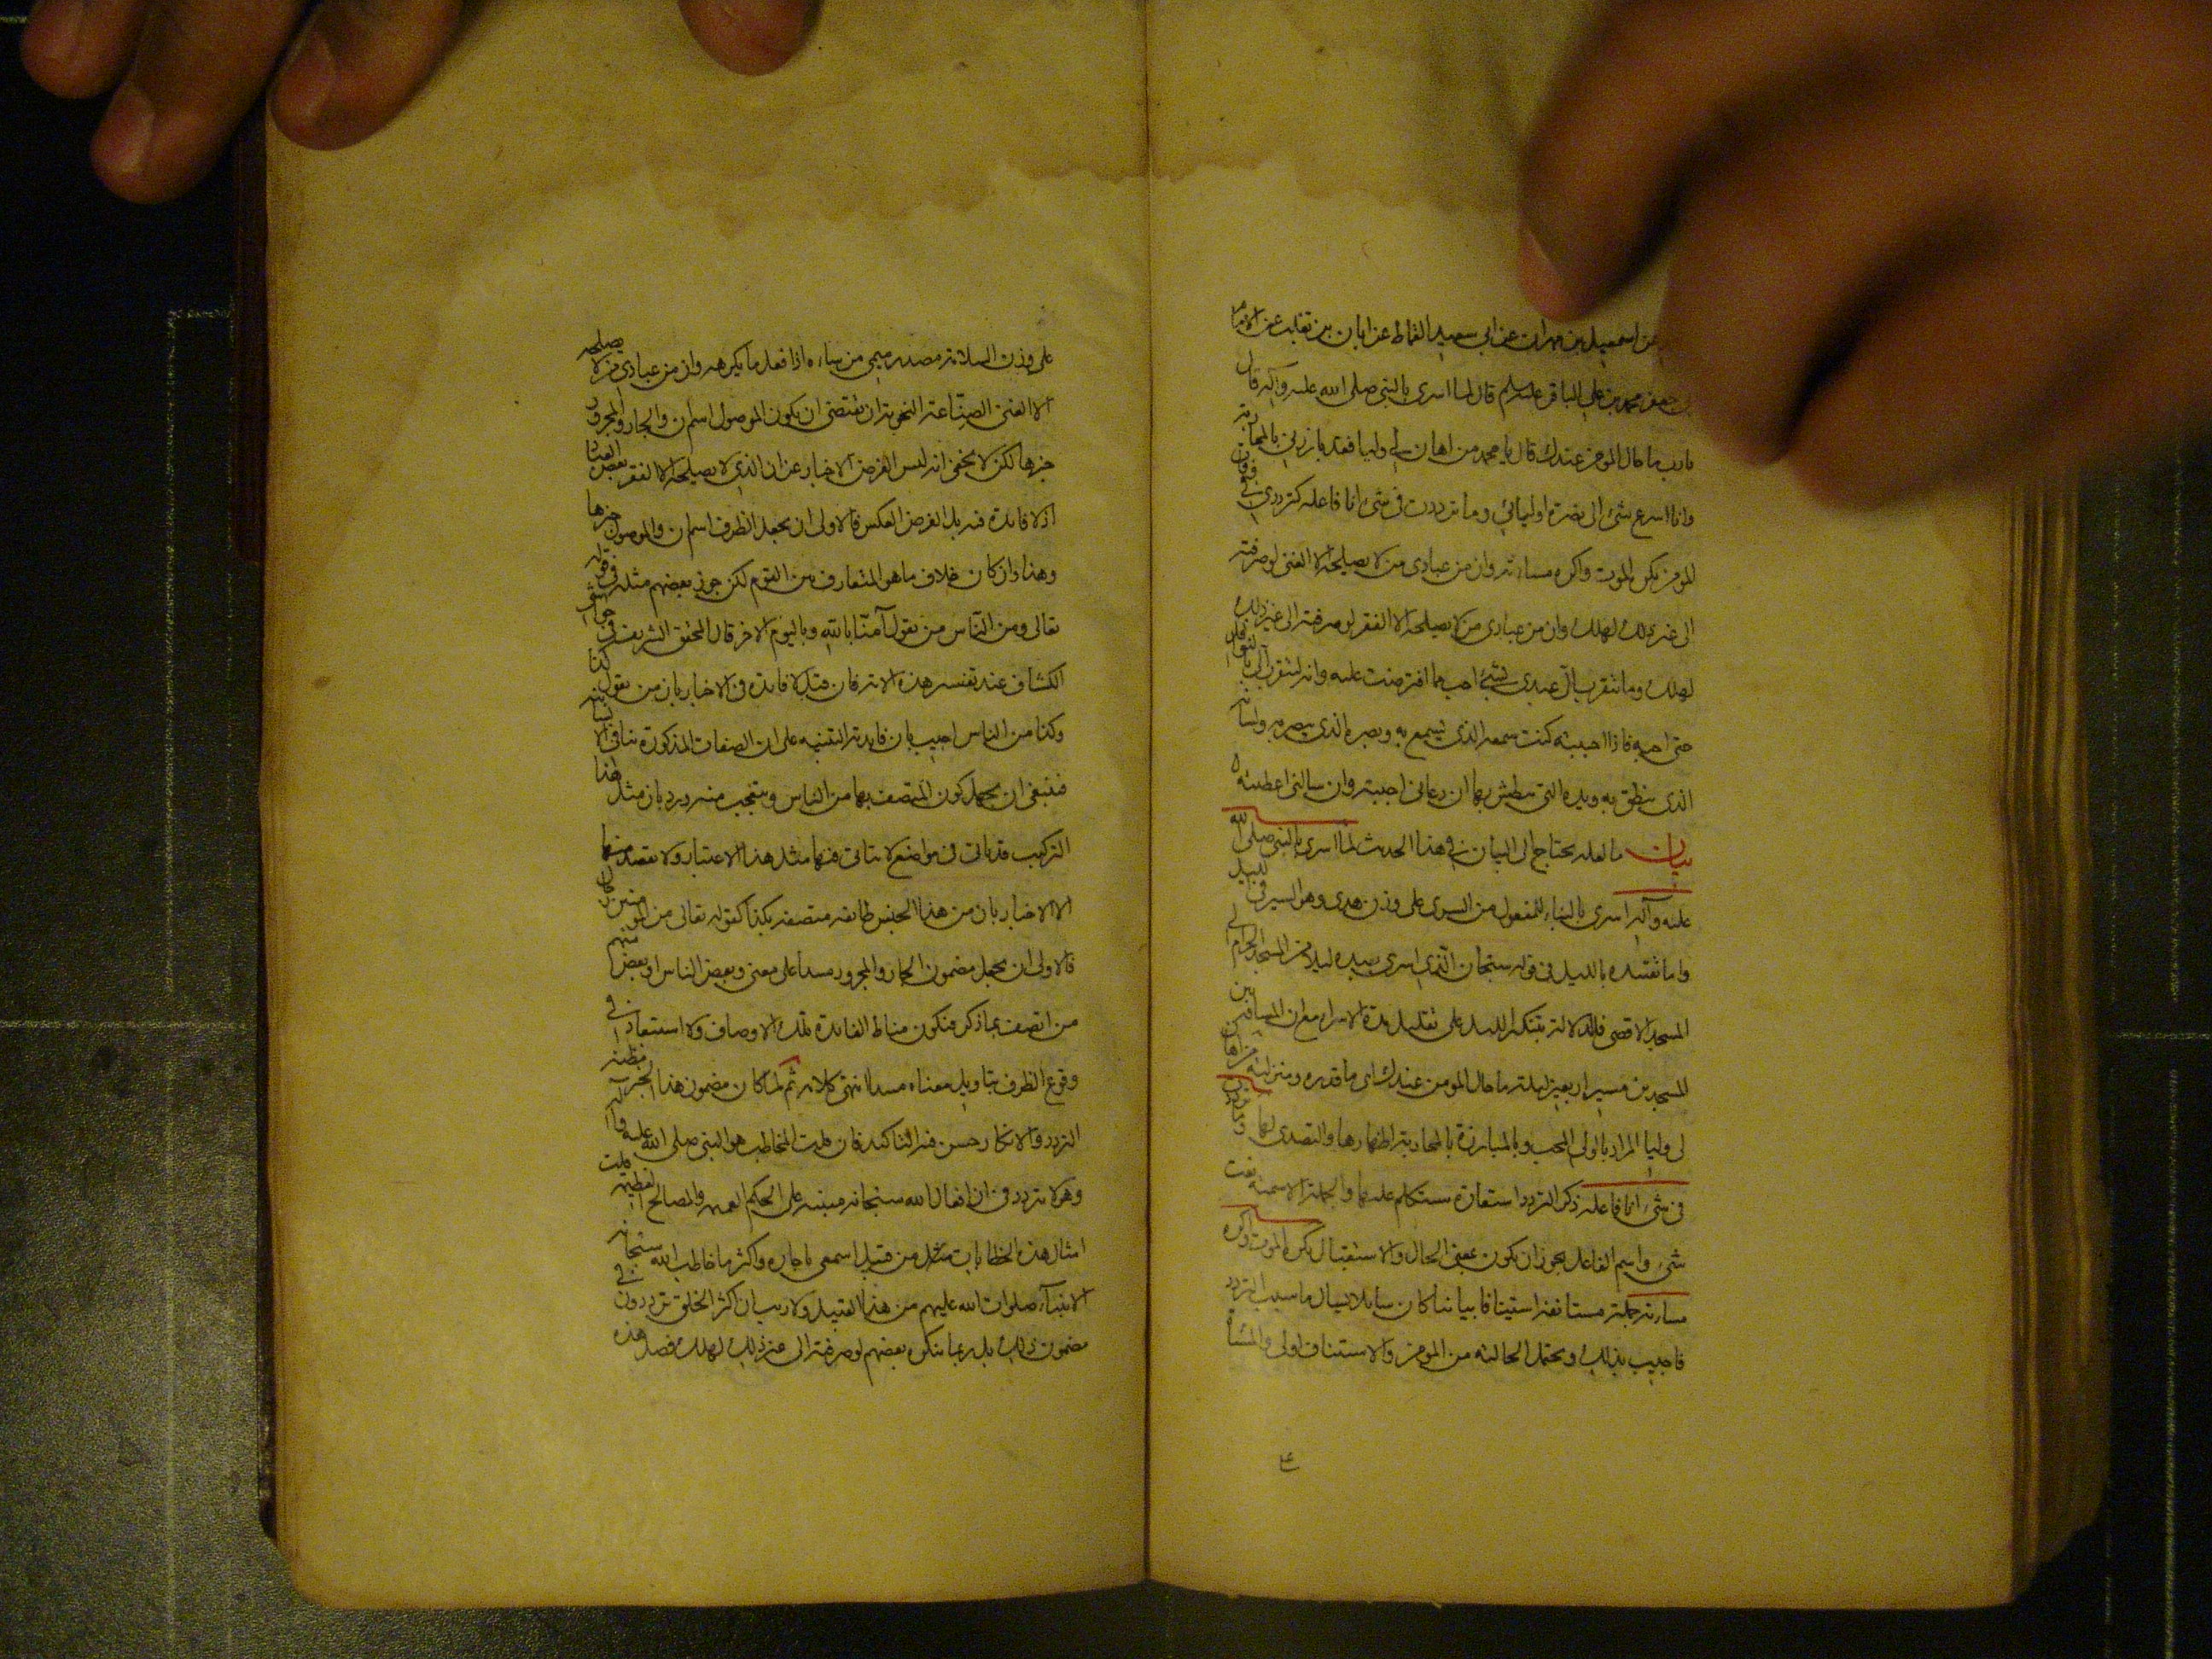 عن اسمعيل بن مهران عن ابي سعيد القماط عن ابان بن تغلب عن الامام
ابي جعفر محمد بن علي الباقر عليه السلم قال لما اسرى بالنبي صلى الله عليه وآله قال
يا رب ما حال المومن عندك قال يا محمد من اهان لي وليا فقد بارزني بالمحاربة
وانا اسرع شئ الى نصرة اوليائي وما ترددت في شئ انا فاعله كترددي في وفاة
المومن يكره الموت واكره مساءته وان من عبادي من لا يصلحه الا الغنى لو صرفته
الى غير ذلك لهلك وان من عبادي من لا يصلحه الا الفقر لو صرفته الى غير ذلك
لهلك وما يتقرب الي عبدي بشئ احب مما افترضت عليه وانه ليتقرب الي بالنوافل
حتى احبه فاذا احببته كنت سمعه الذي يسمع به وبصره الذي يبصر به ولسانه
الذي ينطق به ويده التي يبطش بها ان دعاني اجبته وان سالني اعطيته
بيان ما لعله يحتاج الى البيان في هذا الحديث لما اسرى بالنبي صلى الله
عليه وآله اسرى بالبناء للمفعول من السرى على وزن هدى وهو السير في الليل
واما تقييده بالليل في قوله سبحان الذي اسرى بعبده ليلا من المسجد الحرام الى
المسجد الاقصى فللدلالة بتنكير الليل على تقليل مدة الاسراء مع ان المسافة بين
المسجدين مسير اربعين ليلة ما حال المومن عندك اي ما قدره ومنزلته من اهان
لي وليا المراد بالولي المحب وبالمبارزة بالمحاربة اظهارها والتصدي لها وما ترددت
في شئ انا فاعله ذكر التردد استعارة سنتكلم عليها والجملة الاسمية نعت
شئ واسم الفاعل يجوز ان يكون بمعنى الحال والاستقبال يكره الموت واكره
مساءته جملة مستانفة استينافا بيانيا كان سايلا يسال ما سبب التردد
فاجيب بذلك ويحتمل الحالية من المومن والاستيناف اولى والمساءة
على وزن السلامة مصدر ميمي من ساءه اذا فعل ما يكرهه وان من عبادي من لا يصلحه
الا الغنى الصناعة النحوية ان يقتضى ان يكون الموصول اسم ان والجار والمجرور
خبرها لكن لا يخفى انه ليس الغرض الاخبار عن ان الذي لا يصلحه الا الفقر بعض العباد
اذ لا فائدة فيه بل الغرض العكس فالاولى ان يجعل الظرف اسم ان والموصول خبرها
وهذا وان كان خلاف ما هو المتعارف بين القوم لكن جوز بعضهم مثله في قوله
تعالى ومن الناس من يقول آمنا بالله وباليوم الاخر قال المحقق الشريف في حواشي
الكشاف عند تفسير هذه الاية فان قيل لا فايدة في الاخبار بان من يقول كذا
وكذا من الناس اجيب بان فايدته التنبيه على ان الصفات المذكورة تنافي الانسانية
فينبغي ان يجهل كون المتصف بها من الناس ويتعجب منه ورد بان مثل هذا
التركيب قد ياتي في مواضع لا يتاتى فيها مثل هذا الاعتبار ولا يقصد منها
الا الاخبار بان من هذا الجنس طائفة متصفة بكذا كقوله تعالى من المومنين رجال
فالاولى ان يجعل مضمون الجار والمجرور مبتدأ على معنى وبعض الناس او بعض منهم
من اتصف بما ذكر فيكون مناط الفائدة تلك الاوصاف ولا استبعاد في
وقوع الظرف بتاويل معناه مبتدا انتهى كلامه ثم لما كان مضمون هذا الخبر مظنة
التردد والانكار حسن فيه التاكيد فان قلت المخاطب هو النبي صلى الله عليه وآله
وهو لا يتردد في ان افعال الله سبحانه مبنية على الحكم والمصالح العظيمة قلت
امثال هذه الخطابات من قبيل اسمعي يا جاره واكثر ما خاطب الله سبحانه
الانبياء صلوات الله عليهم من هذا القبيل ولا ريب ان اكثر الخلق يترددون في
مضمون ذلك بل ربما ينكره بعضهم لو صرفته الى غير ذلك لهلك فصل هذه